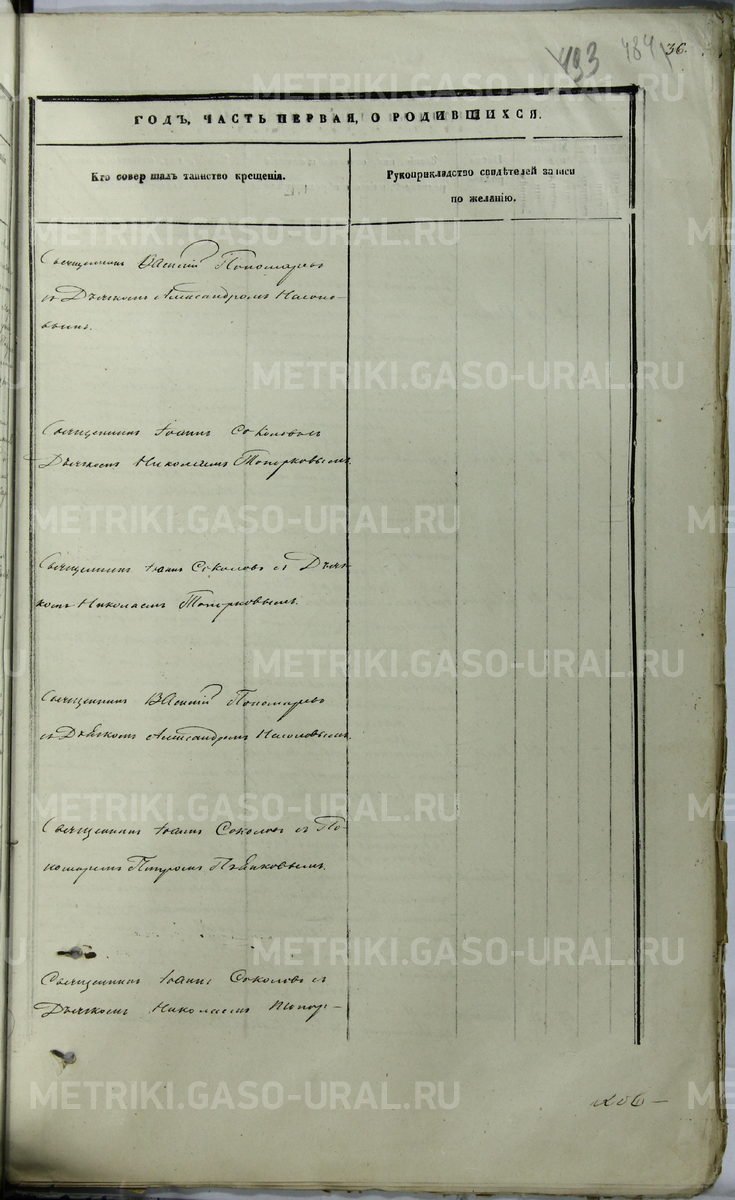 493 484 36.
ГОДЪ, ЧАСТЬ ПЕРВАЯ, О РОДИВШИХСЯ.
Кто совершалъ таинство крещенія.
Рукоприкладство свидѣтелей записи
по желанію.
Священникъ Василій Пономаревъ
съ Дьячкомъ Александромъ Насоно-
вымъ.
Священникъ Іоаннъ Соколовъ съ
Дьячкомъ Николаемъ Топорковымъ.
Священникъ Іоаннъ Соколовъ съ Дьяч-
комъ Николаемъ Топорковымъ.
Священникъ Василій Пономаревъ
съ Дьячкомъ Александромъ Насоновымъ.
Священникъ Іоаннъ Соколовъ съ По-
номаремъ Петромъ
Священникъ Іоаннъ Соколовъ съ
Дьячкомъ Николаемъ Топор-
METRIKI.GASO-URAL.RU